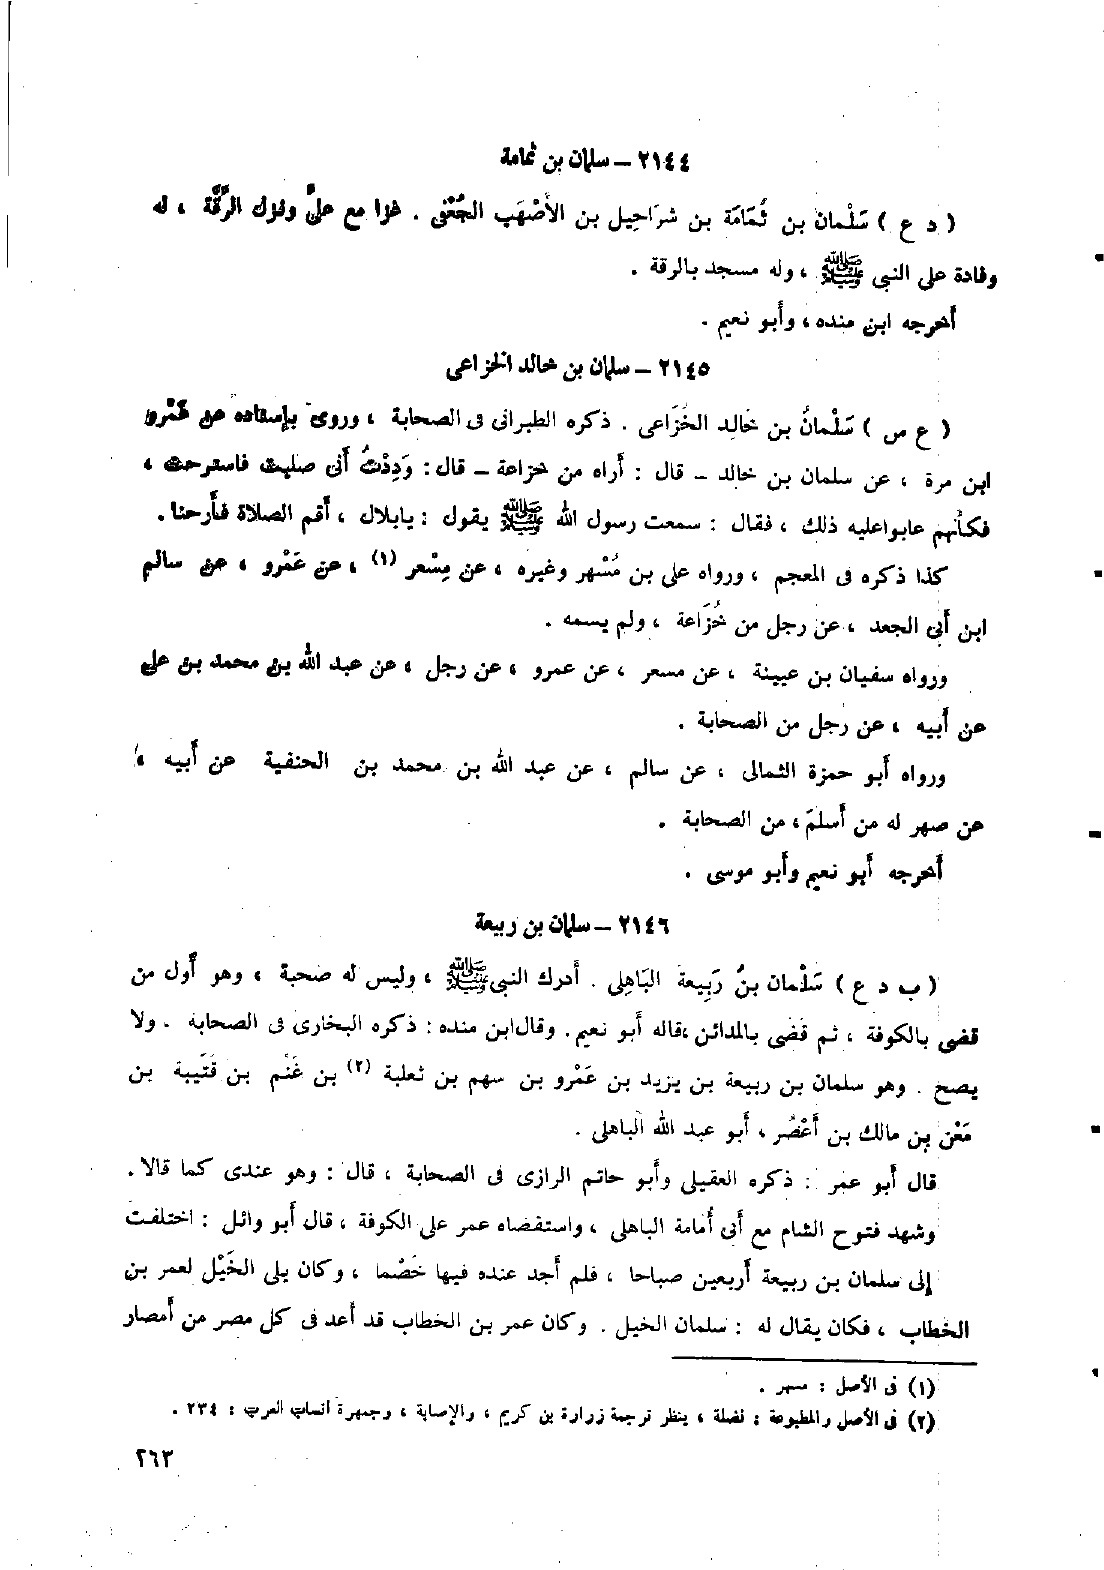 ٢١٤٤ – سلمان بن ثمامة
( د ع ) سَلْمان بن ثُمَامَة بن شراحِيل بن الأَصْهَب الجُعْفى . غزا مع علىّ ونزل الرَّقَّة ، له
وفادة على النبى ﷺ ، وله مسجد بالرقة .
أخرجه ابن منده ، وأَبو نعيم .
٢١٤٥ – سلمان بن خالد الخزاعى
( ع س ) سَلْمانُ بن خَالِد الخُزَاعى . ذكره الطبرانى فى الصحابة ، وروى بإسناده عن عَمْرو
ابن مرة ، عن سلمان بن خالد – قال : أُراه من خزاعة – قال : وَدِدْتُ أَنى صليت فاسترحت ،
فكأَنهم عابوا عليه ذلك ، فقال : سمعت رسول الله ﷺ يقول : يا بلال ، أَقم الصلاة فأَرحنا .
كذا ذكره فى المعجم ، ورواه على بن مُسْهر وغيره ، عن مِسْعر (١) ، عن عَمْرو ، عن سالم
ابن أَبى الجعد ، عن رجل من خُزَاعة ، ولم يسمه .
ورواه سفيان بن عيينة ، عن مسعر ، عن عمرو ، عن رجل ، عن عبد الله بن محمد بن على
عن أَبيه ، عن رجل من الصحابة .
ورواه أَبو حمزة الثمالى ، عن سالم ، عن عبد الله بن محمد بن الحنفية عن أَبيه ،
عن صهر له من أَسلمَ ، من الصحابة .
أَخرجه أَبو نعيم وأَبو موسى .
٢١٤٦ – سلمان بن ربيعة
( ب د ع ) سَلْمان بنُ رَبِيعة البَاهِلى . أَدرك النبى ﷺ ، وليس له صحبة ، وهو أَول من
قضى بالكوفة ، ثم قَضَى بالمدائن ، قاله أَبو نعيم . وقال ابن منده : ذكره البخارى فى الصحابة . ولا
يصح . وهو سلمان بن ربيعة بن يزيد بن عَمْرو بن سهم بن ثعلبة (٢) بن غَنْم بن قُتَيبة بن
مَعْن بن مالك بن أَعْصُر ، أَبو عبد الله الباهلى .
قال أَبو عمر : ذكره العقيلى وأَبو حاتم الرازى فى الصحابة ، قال : وهو عندى كما قالا .
وشهد فتوح الشام مع أَبى أُمامة الباهلى ، واستقضاه عمر على الكوفة ، قال أَبو وائل : اختلفت
إلى سلمان بن ربيعة أَربعين صباحا ، فلم أَجد عنده فيها خَصْما ، وكان يلى الخَيْل لعمر بن
الخطاب ، فكان يقال له : سلمان الخيل . وكان عمر بن الخطاب قد أعد فى كل مصر من أَمصار
(١) فى الأصل : مسهر .
(٢) فى الأصل والمطبوعة : نضلة ، ينظر ترجمة زرارة بن كريم ، والإصابة ، وجمهرة أنساب العرب : ٢٣٤ .
٢٦٣